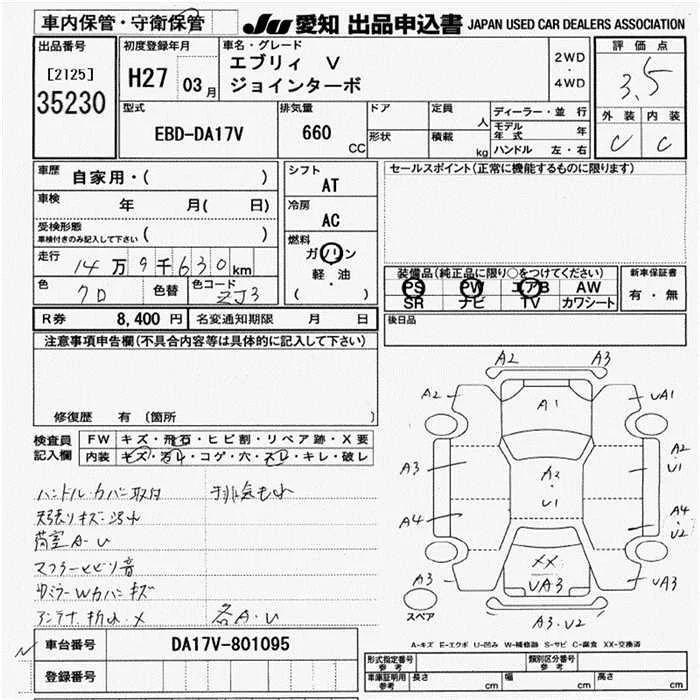 車内保管・守衛保管
JU 愛知 出品申込書 JAPAN USED CAR DEALERS ASSOCIATION
出品番号
[2125]
35230
初度登録年月
H27 03月
車名・グレード
エブリィ V
ジョインターボ
2WD
・
4WD
評価点
3.5
外装 内装
C C
型式
EBD-DA17V
排気量
660
CC
ドア
形状
定員 人
積載 kg
ディーラー・並行
モデル年式 年
ハンドル 左・右
車歴 自家用・( )
車検 年 月( 日)
受検形態
車検付きのみ記入して下さい ( )
走行 14万9千630km
色 7D 色替 色コード ZJ3
シフト
AT
冷房
AC
燃料
ガソリン
軽・油
( )
セールスポイント(正常に機能するものに限ります)
装備品(純正品に限り○をつけてください)
PS PW エアB AW
SR ナビ TV カワシート
新車保証書
有・無
R券 8,400円 名変通知期限 月 日
後日品
注意事項申告欄(不具合内容等は具体的に記入して下さい)
修復歴 有 〔箇所
検査員
記入欄
FW キズ・飛石・ヒビ割・リペア跡・X要
内装 キズ・汚レ・コゲ・穴・スレ・キレ・破レ
ハンドルカバー取付 排気もれ
天張りキズ・汚れ
荷室A・U
マフラーセビリ音
ドミラーWカバーキズ
アンテナ折れ・X 各A・U
A2 A3
A2 A1 UA1
A3 A2
・
U1 A2
U1
A4 A4
U2
A3 XX
UA3 UA3
スペア A3・U2
A-キズ E-エクボ U-凹み W-補修跡 S-サビ C-腐食 XX-交換済
車台番号 DA17V-801095
登録番号
形式指定番号
参考
類別区分番号
参考
車庫証明用
参考
長さ cm 幅 cm 高さ cm